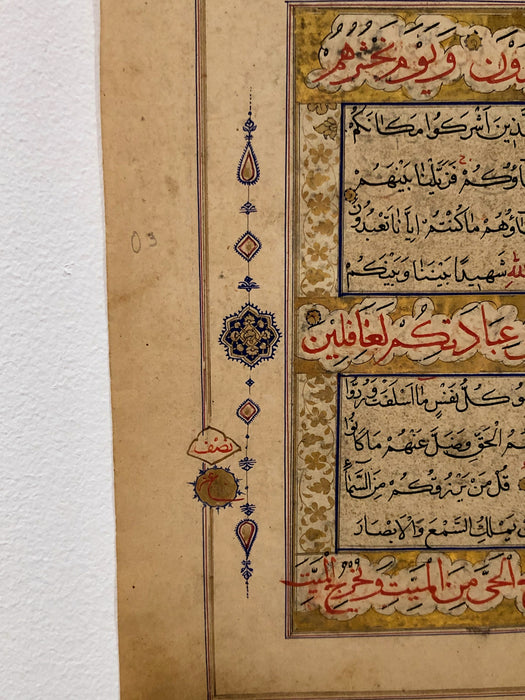 وَيَوْمَ نَحْشُرُهُمْ
اَشْرَكُوا مَكَانَكُمْ
فَزَيَّلْنَا بَيْنَهُمْ
مَا كُنْتُمْ اِيَّانَا تَعْبُدُونَ
شَهِيدًا بَيْنَنَا وَبَيْنَكُمْ
عِبَادَتِكُمْ لَغَافِلِينَ
كُلُّ نَفْسٍ مَا اَسْلَفَتْ وَرُدُّوا
الْحَقِّ وَضَلَّ عَنْهُمْ مَا كَانُوا
نصف
قُلْ مَنْ يَرْزُقُكُمْ مِنَ السَّمَاءِ
يَمْلِكُ السَّمْعَ وَالْاَبْصَارَ
الْحَىَّ مِنَ الْمَيِّتِ وَيُخْرِجُ الْمَيِّتَ